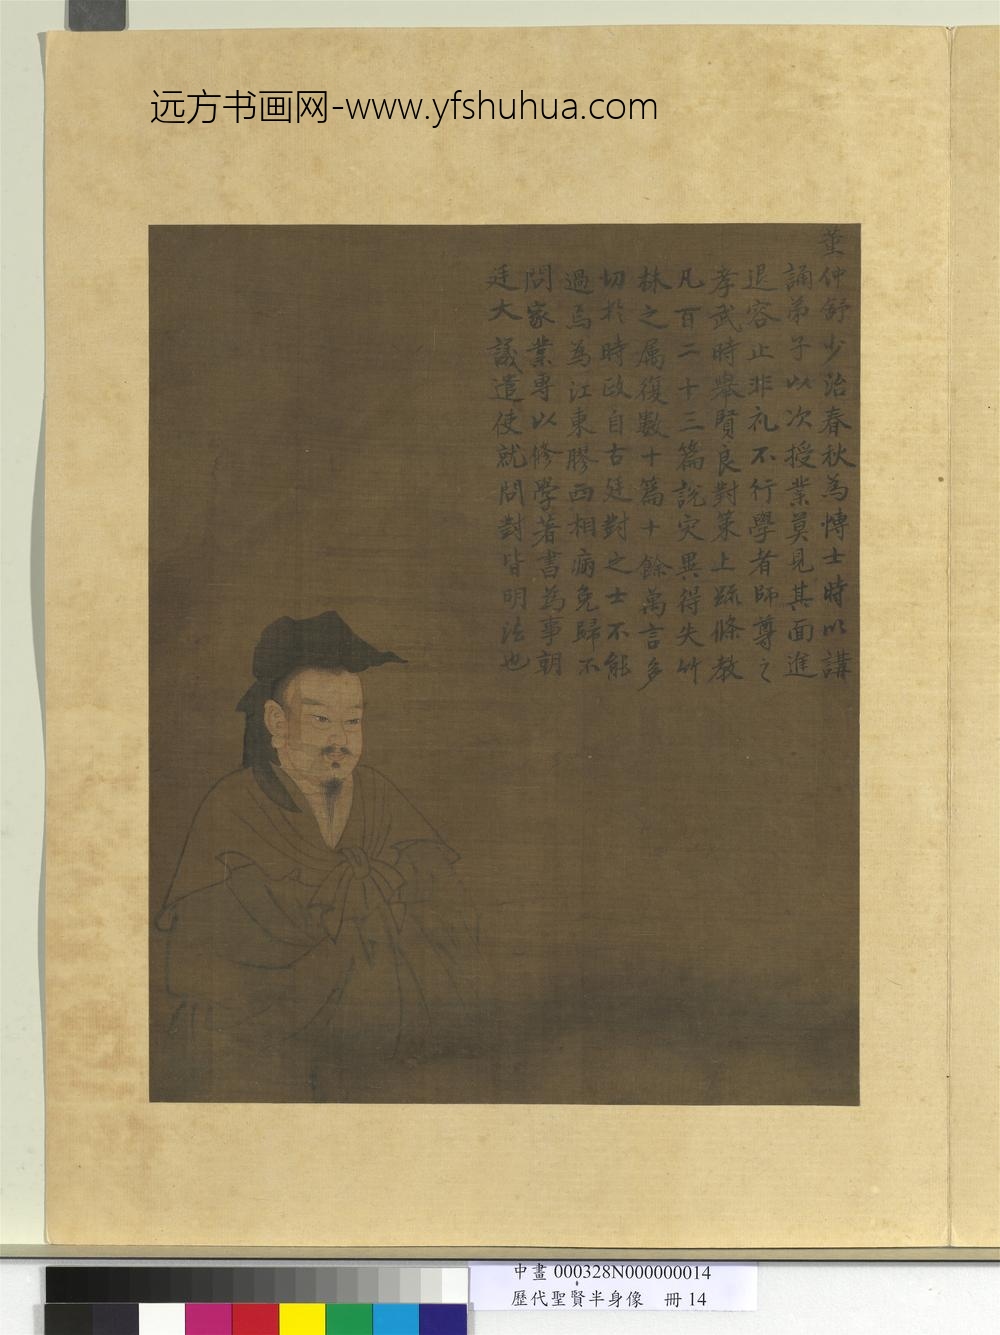 远方书画网-www.yfshuhua.com
董仲舒少治春秋為愽士時以講
誦弟子以次授業莫見其面進
退容止非礼不行學者師尊之
孝武時舉賢良對策上疏條教
凡百二十三篇說灾異得失竹
林之属復數十篇十餘萬言多
切於時政自古廷對之士不能
過焉為江東膠西相病免歸不
問家業專以修學著書為事朝
廷大議遣使就問對皆明法也
中畫 000328N000000014
歷代聖賢半身像 冊 14